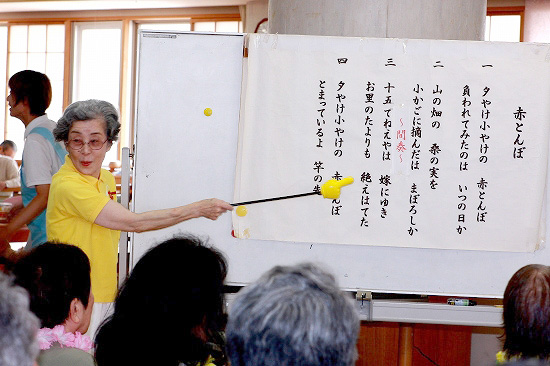 赤とんぼ
一 夕やけ小やけの 赤とんぼ
負われてみたのは いつの日か
二 山の畑の 桑の実を
小かごに摘んだは まぼろしか
～間奏～
三 十五でねえやは 嫁にゆき
お里のたよりも 絶えはてた
四 夕やけ小やけの 赤とんぼ
とまっているよ 竿の